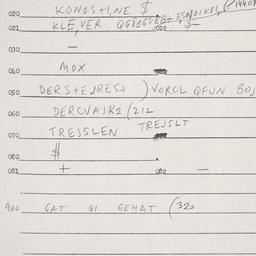 020 KONSTINE $
021 KLEVER 022 $-
030 -
040 MOX
050 DERSTEJREST ) VORCL QFUN BOJ
060 DERCVAJK2 (212
070 TREJSLEN TREJSLT
080 #
081 + 082 -
900 GAT GI GEHAT (320